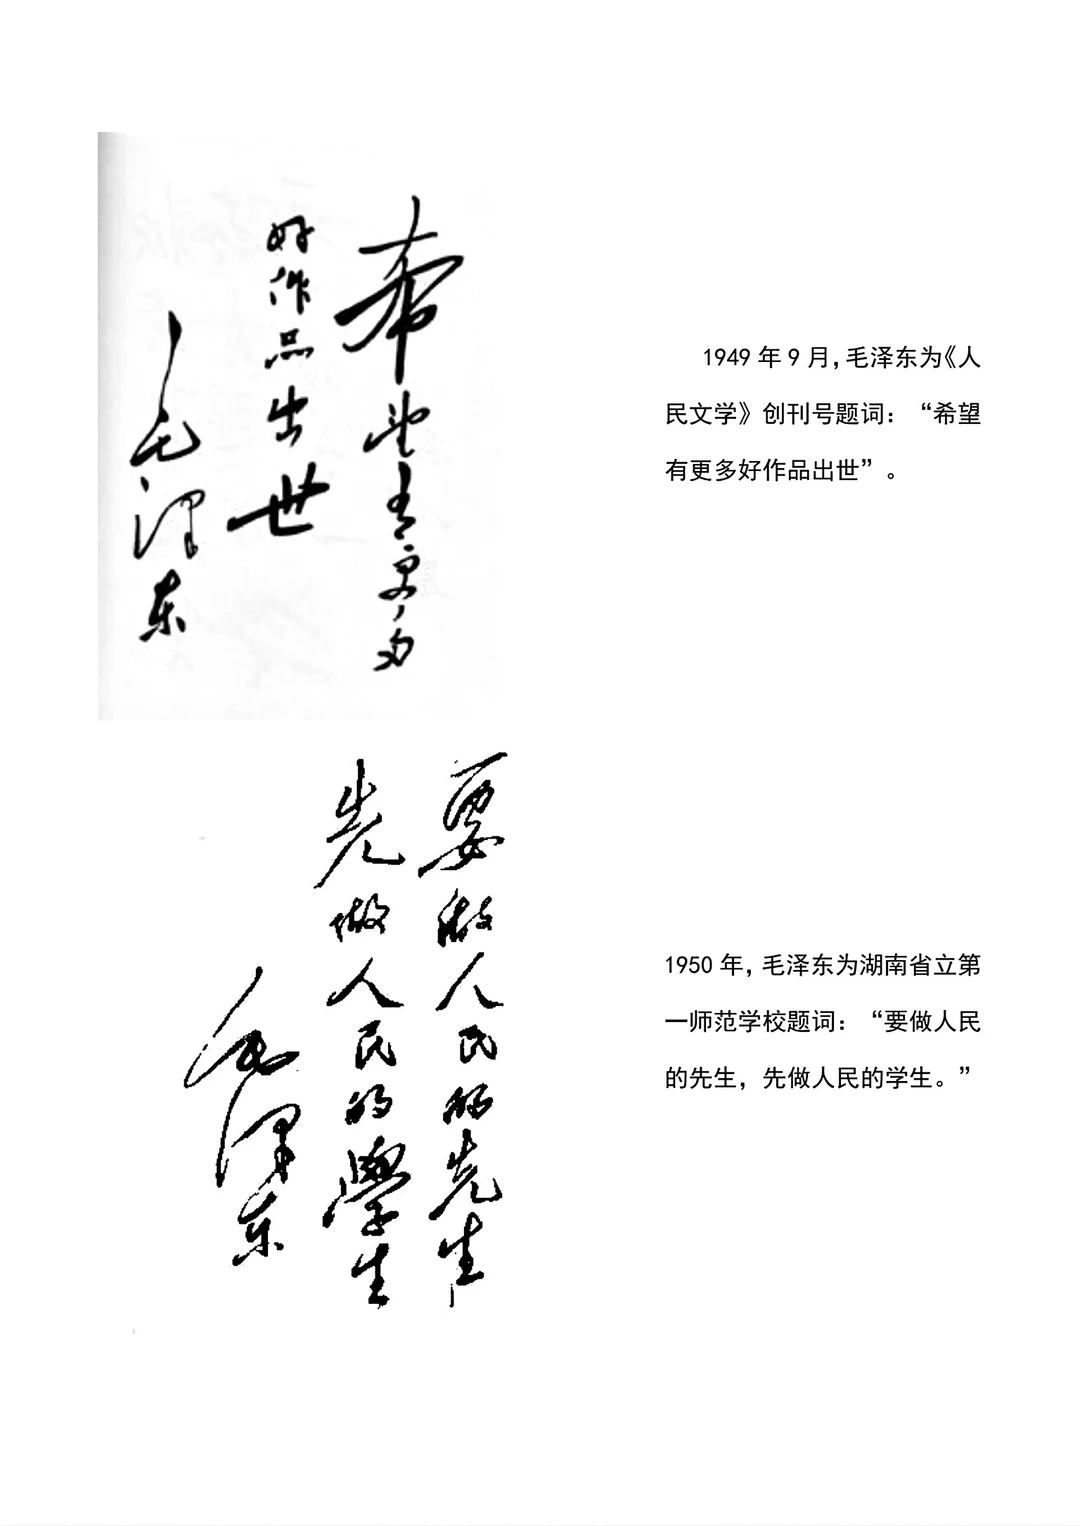 希望有更多
好作品出世
毛泽东
1949年9月，毛泽东为《人
民文学》创刊号题词：“希望
有更多好作品出世”。
要做人民的先生
先做人民的學生
毛泽东
1950年，毛泽东为湖南省立第
一师范学校题词：“要做人民
的先生，先做人民的学生。”